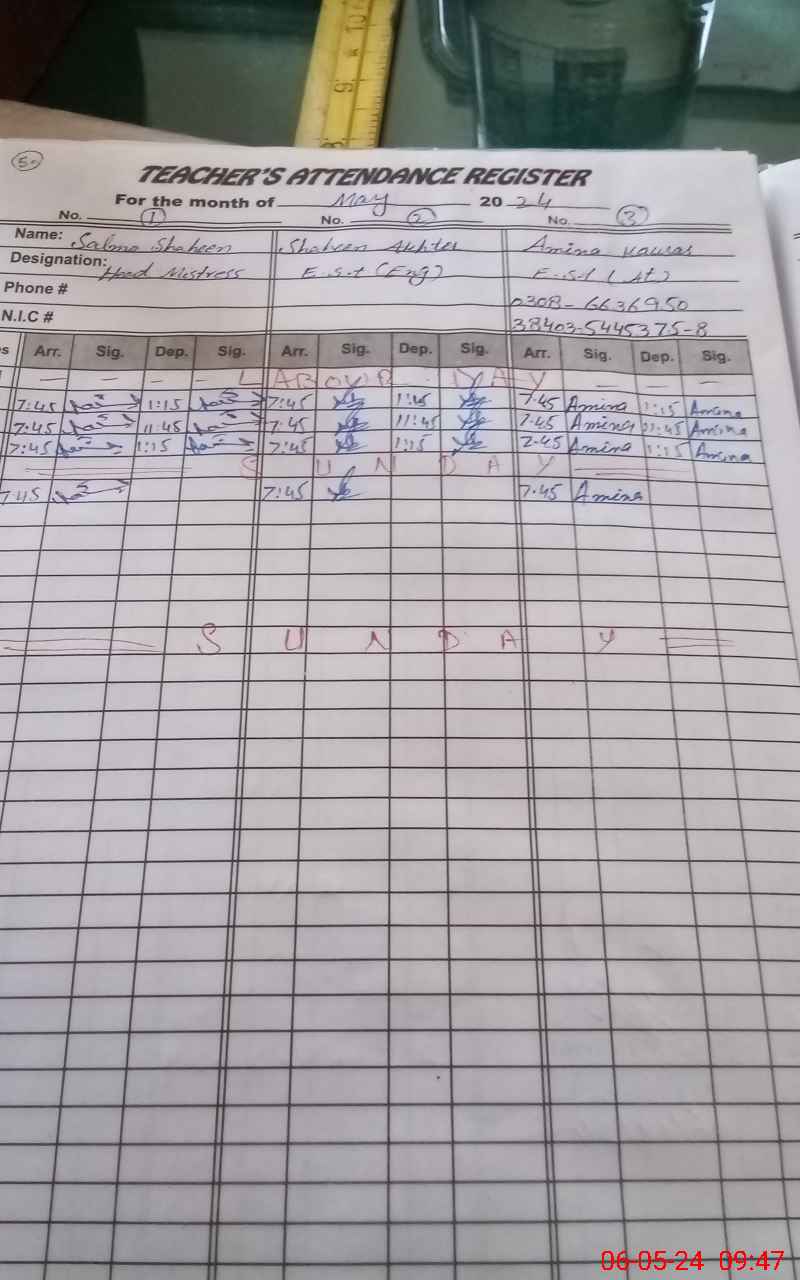 9. * 10
5.
TEACHER'S ATTENDANCE REGISTER
For the month of May 20 24
No. 1 No. 2 No. 3
Name: Salma Shaheen Shaheen Akhter Amina Kausar
Designation: Head Mistress E.S.t (Eng) E.S.t (At)
Phone # 0308-6636950
N.I.C # 38403-5445375-8
s Arr. Sig. Dep. Sig. Arr. Sig. Dep. Sig. Arr. Sig. Dep. Sig.
LABOUR DAY
7:45 1:15 7:45 1:15 7.45 Amina 1:15 Amina
7:45 11:45 7:45 11:45 7.45 Amina 11:45 Amina
7:45 1:15 7:45 1:15 7.45 Amina 1:15 Amina
SUNDAY
7:45 7:45 7.45 Amina
SUNDAY
06-05-24 09:47